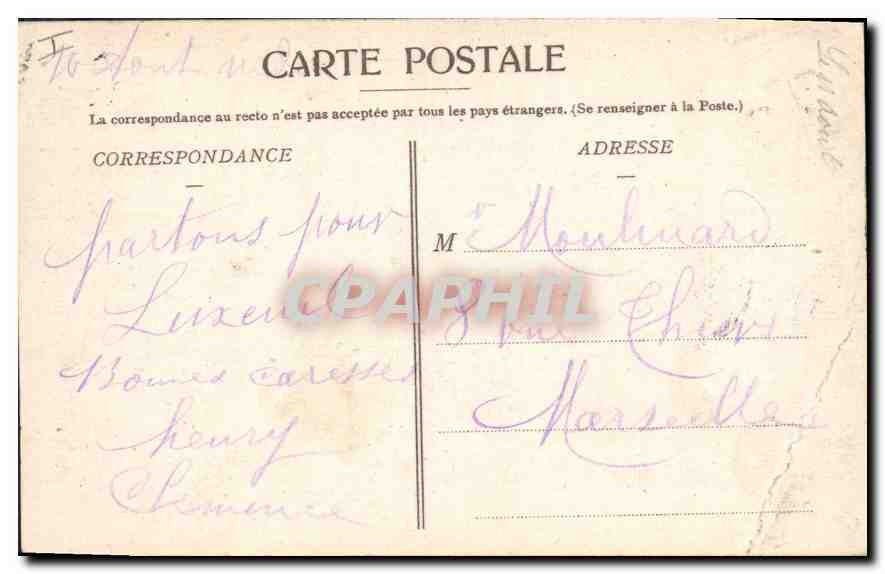 I
10 Aout
CARTE POSTALE
La correspondance au recto n'est pas acceptée par tous les pays étrangers. (Se renseigner à la Poste.)
CORRESPONDANCE
partons pour
Luxeuil
Bonnes Caresses
henry
Clemence
ADRESSE
M Moulinard
8 rue Thiers
Marseille
CPAPHIL